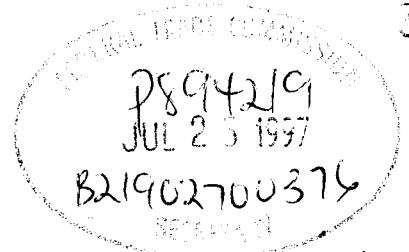 FEDERAL TRADE COMMISSION
P894219
JUL 25 1997
B21902700376
SECRETARY